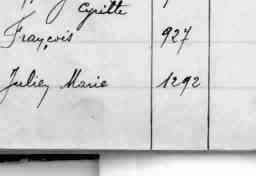 Cyrille
François 927
Julien Marie 1292